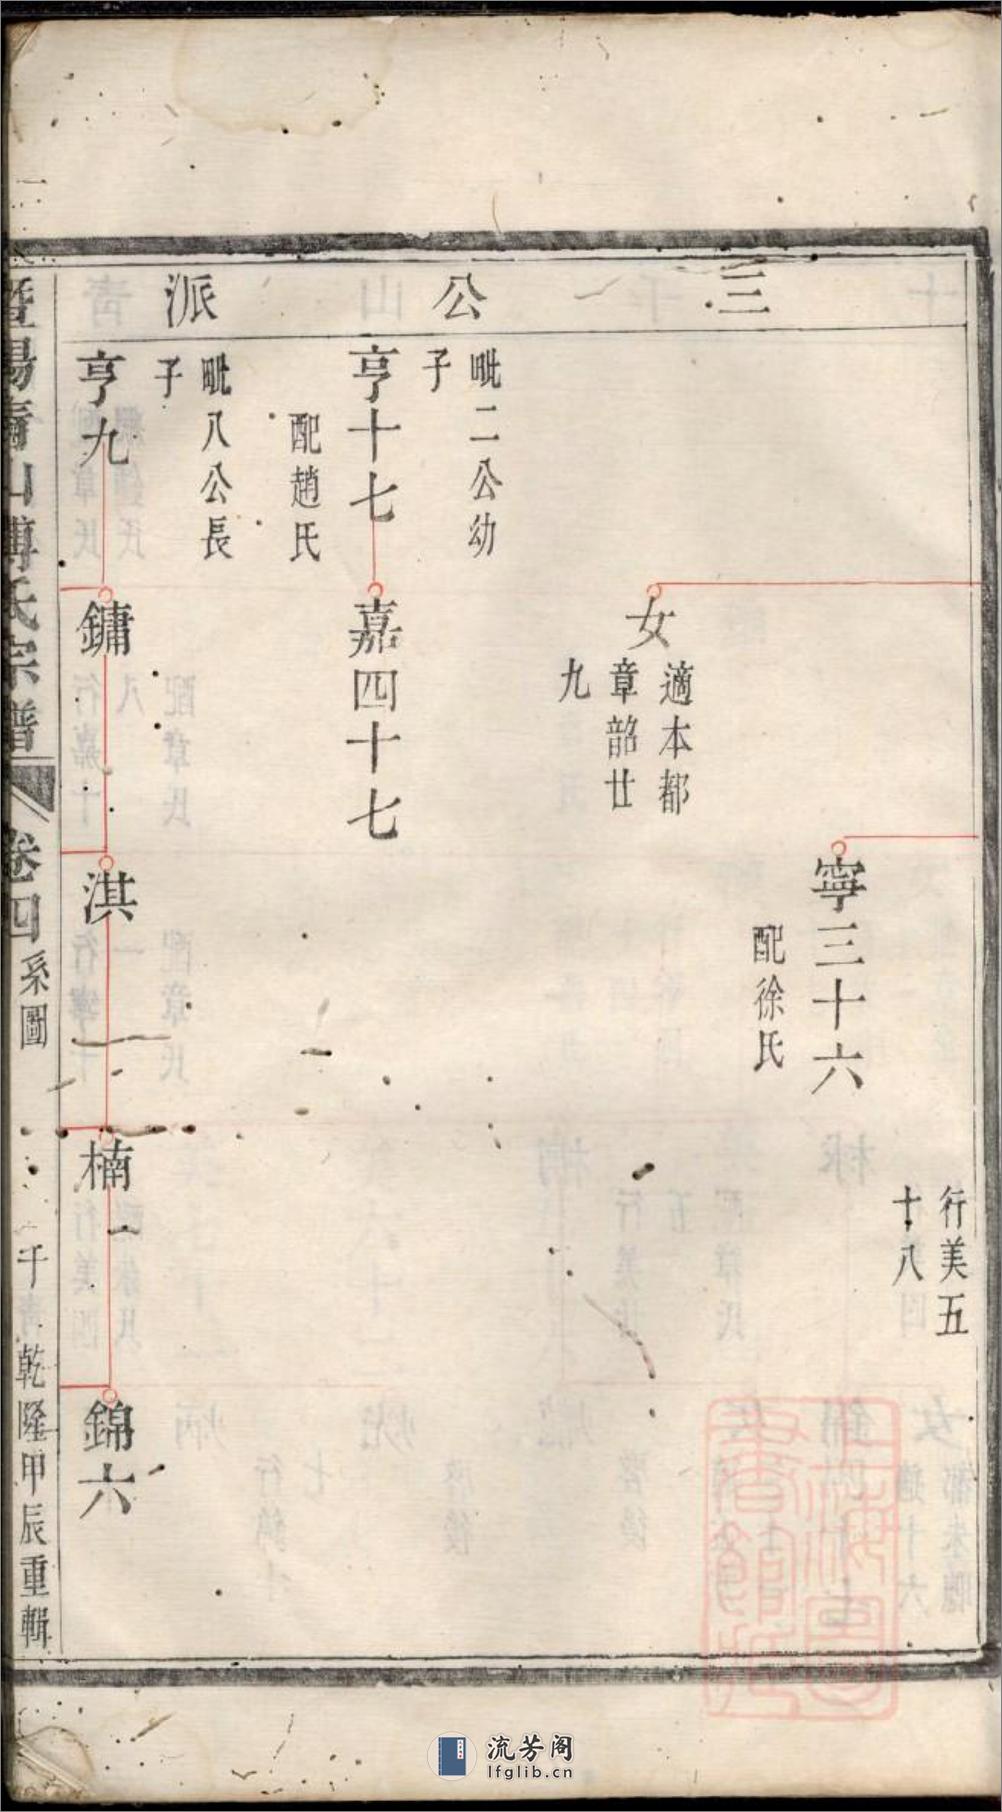 三公派
行美五
十八
寧三十六
配徐氏
女
適本都
章韶廿
九
毗二公幼
子
亨十七
配趙氏
嘉四十七
毗八公長
子
亨九
鏞
淇
楠
錦六
暨陽青山傅氏宗譜
卷四
系圖
千
乾隆甲辰重輯
流芳阁
lfglib.cn